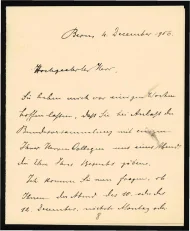 Bern, 4. December 1906.
Hochgeehrter Herr,
Sie haben mich vor einigen Wochen
hoffen lassen, dass Sie bei Anlass der
Bundesversammlung mit einigen
Ihrer Herren Collegen uns einen Abend
die Ehre Ihres Besuchs geben.
Ich komme Sie nun fragen, ob
Ihnen der Abend des 10. oder des
12. December, nächste Montag oder